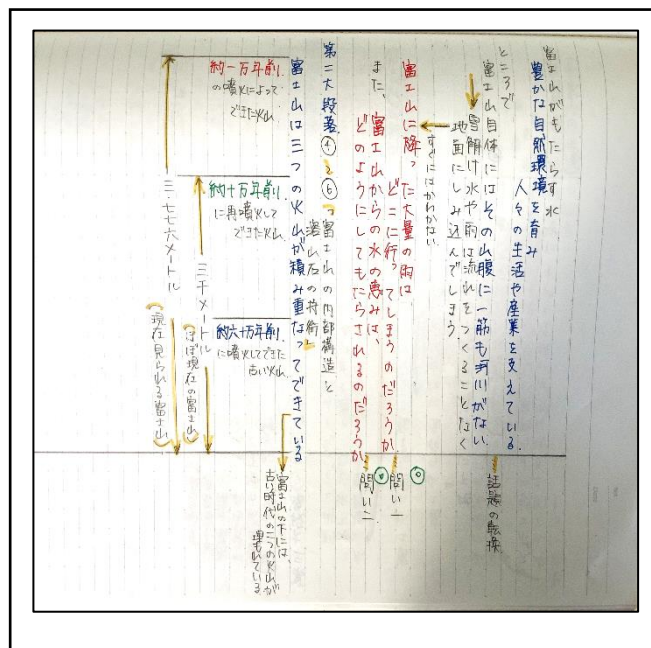 富士山がもたらす水
豊かな自然環境を育み
人々の生活や産業を支えている。
ところで
富士山自体にはその山腹に一筋も河川がない
雪解け水や雨は流れをつくることなく
地面にしみ込んでしまう。
すぐにはわかわかない。
富士山に降った大量の雨は
どこに行ってしまうのだろうか
また、
富士山からの水の恵みは、
どのようにしてもたらされるのだろうか
話題の転換
問い一
問い二
第二大段落④〜⑥「富士山の内部構造と
溶岩の特徴」
富士山は三つの火山が積み重なってできている
富士山の下には、
古い時代の二つの火山が
埋もれている
約一万年前
の噴火によって
できた火山
約十万年前
に再噴火して
できた火山
約六十万年前
に噴火してできた
古い火山
三千メートル
(ほぼ現在の富士山)
三・七七六メートル
(現在見られる富士山)